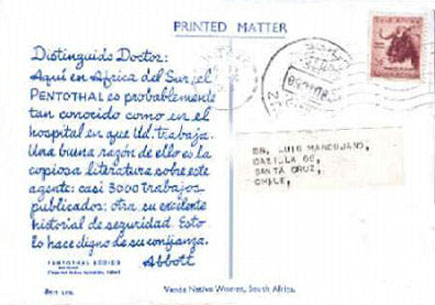 PRINTED MATTER
Distinguido Doctor:
Aquí en Africa del Sur, el
PENTOTHAL es probablemente
tan conocido como en el
hospital en que Ud. trabaja.
Una buena razón de ello es la
copiosa literatura sobre este
agente: casi 3000 trabajos
publicados; otra su excelente
historial de seguridad. Esto
lo hace digno de su confianza.
Abbott
PENTOTHAL SÓDICO
DR. LUIS MANDUJANO,
CASILLA 66,
SANTA CRUZ,
CHILE,
Venda Native Women, South Africa.